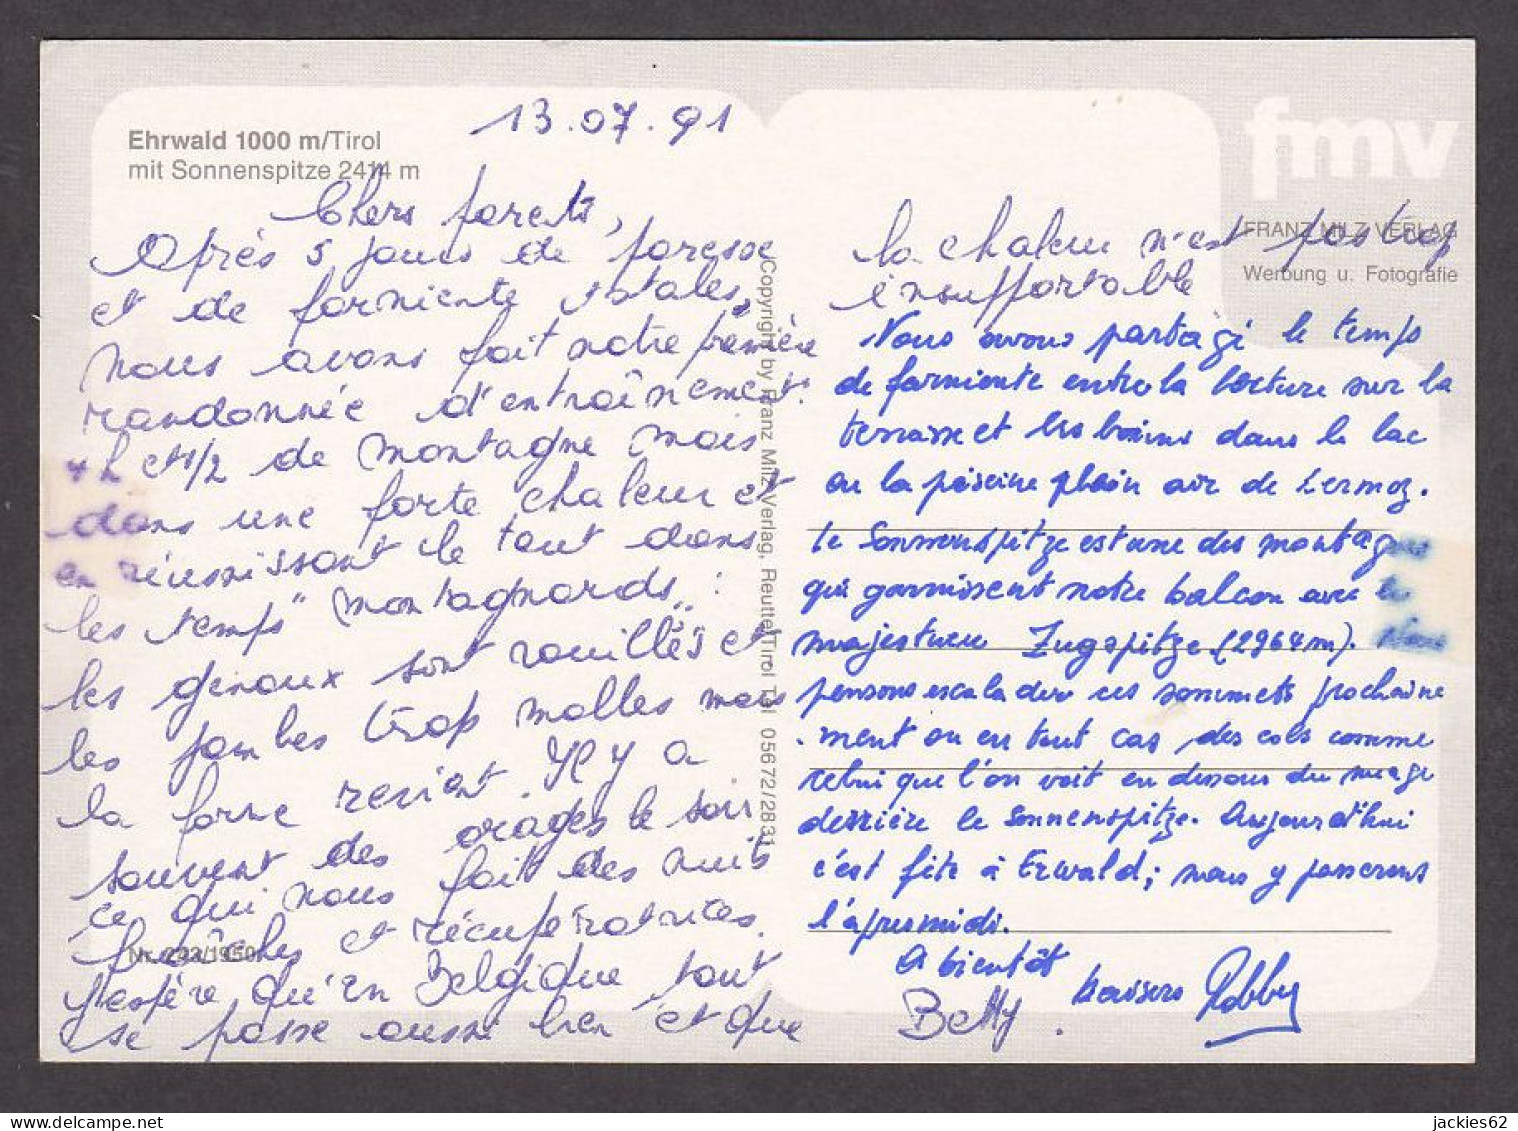 13.07.91
Ehrwald 1000 m/Tirol
mit Sonnenspitze 2414 m
Chers parents,
Après 5 jours de paresse
et de farniente totales,
nous avons fait notre première
randonnée d'entraînement:
4 h et 1/2 de montagne mais
dans une forte chaleur et
en réunissant le tout dans
les temps "montagnards" :
les genoux sont rouillés et
les jambes trop molles mais
la forme revient. Il y a
souvent des orages le soir
ce qui nous fait des nuits
fraîches et récupératrices.
J'espère qu'en Belgique tout
se passe aussi bien et que
Nr. 293/1950
Copyright by Franz Milz Verlag, Reutte/Tirol Tel 05672/2831
fmv
FRANZ MILZ VERLAG
Werbung u. Fotografie
la chaleur n'est pas trop
insupportable
Nous avons partagé le temps
de farniente entre la lecture sur la
terrasse et les bains dans le lac
ou la piscine plein air de Lermoz.
Le Sonnenspitze est une des montagnes
qui garnissent notre balcon avec le
majestueux Zugspitze (2964m). Nous
pensons escalader ces sommets prochaine
-ment ou en tout cas des cols comme
celui que l'on voit en dessous du nuage
derrière le Sonnenspitze. Aujourd'hui
c'est fête à Erwald; nous y passerons
l'après midi.
A bientôt
Baisers Robby
Betty.
jackies62